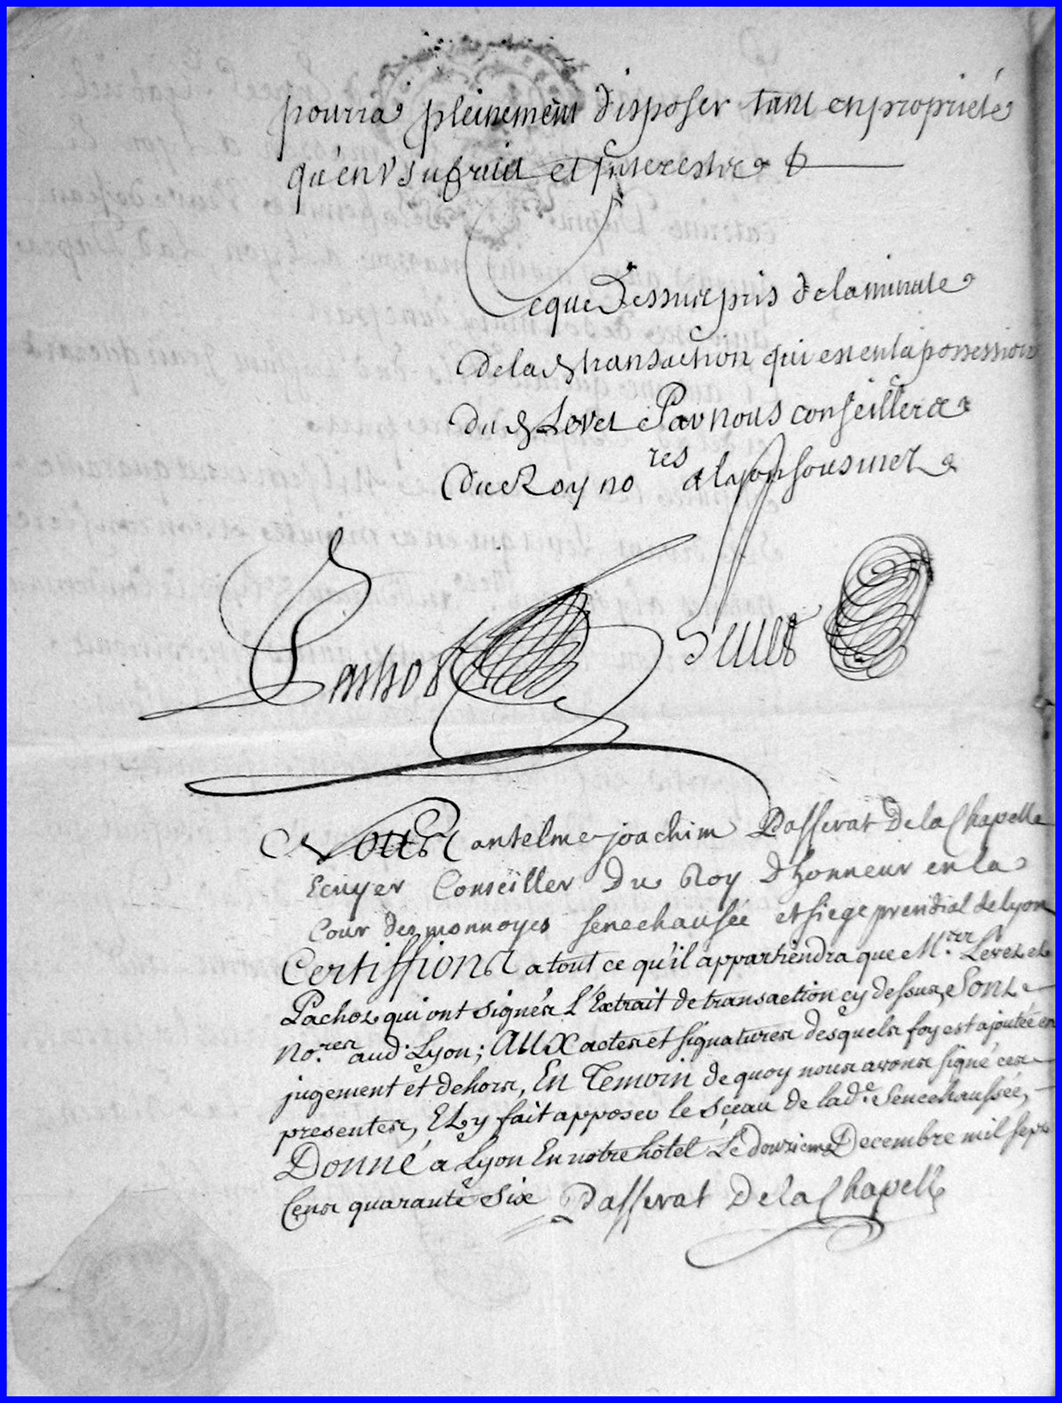 pourra pleinement disposer tant en proprieté
qu'en Usufruit et Interest &
Ce que Dessus pris de la minute
de la de transaction qui est en la possession
du de Levet Par nous conseillers
du Roy no res a Lyon sousmez
Pachot Levet
Nous anselme joachim Passerat De la Chapelle
Ecuyer Conseiller Du Roy d'honneur en la
Cour des monnoyes senechaussée et siege presidial de Lyon
Certiffions a tout ce qu'il appartiendra que M.res Levet et
Pachot qui ont signés l'Extrait de transaction cy dessus, Sont
No.res aud. Lyon; AUX actes et signatures desquels foy est ajoutée en
jugement et dehors, En Temoin de quoy nous avons signé ces
presentes, Et y fait apposer le sceau de lad.e Senechaussée,
Donné a Lyon En notre hôtel Le douzieme Decembre mil sept
Cens quarante six Passerat De la Chapelle